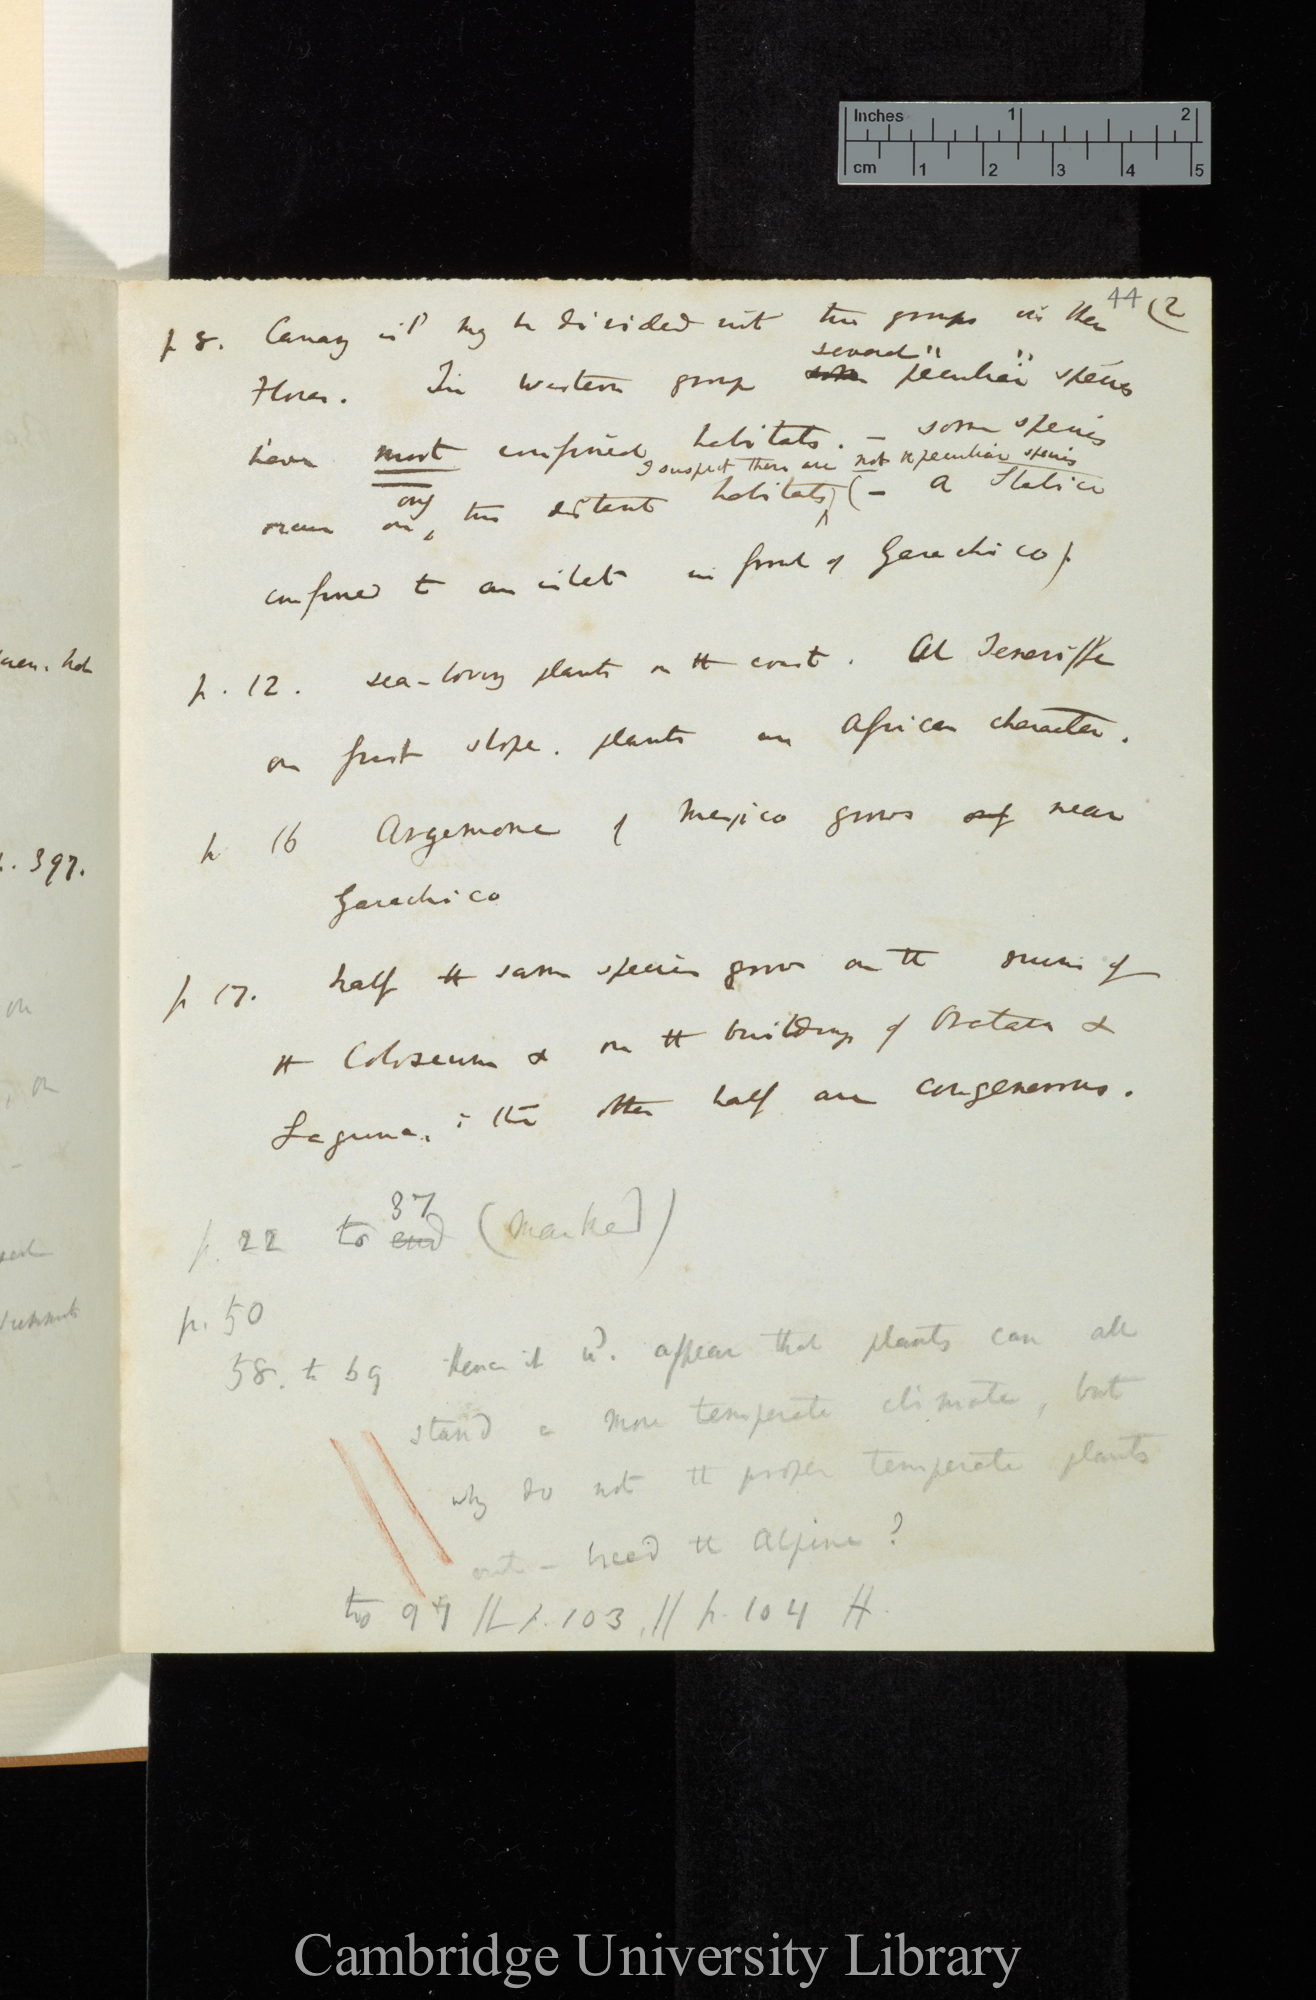 Inches 1 2
cm 1 2 3 4 5
44 (2
p 8. Canary isd may be divided into two groups in their
Floras. In western group some several "peculiar" species
have most confined habitats. – some species
I suspect these are not peculiar species
occur on only two distant habitats (– a Statice
confined to an islet in front of Garachico).
p. 12. sea-loving plants on the coast. At Teneriffe
on first slope. plants an African character.
p 16 Argemone of Mexico grows only near
Garachico
p 17. half the same species grow on the ruins of
the Coloseum & on the buildings of Orotava &
Laguna. ; the other half are congenerous.
p. 22 to end 37 (marked)
p. 50
58. to 69 Hence it wd. appear that plants can all
stand a more temperate climate, but
why do not the proper temperate plants
out-breed the Alpine?
to 94 // p. 103 // p. 104 //.
uen. hot
p. 397.
on
on
Summit
Cambridge University Library